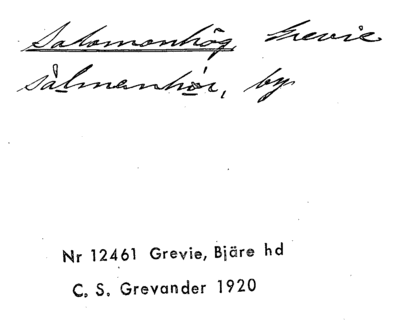 Salomonhög, Grevie
sålmanhör, by
Nr 12461 Grevie, Bjäre hd
C. S. Grevander 1920